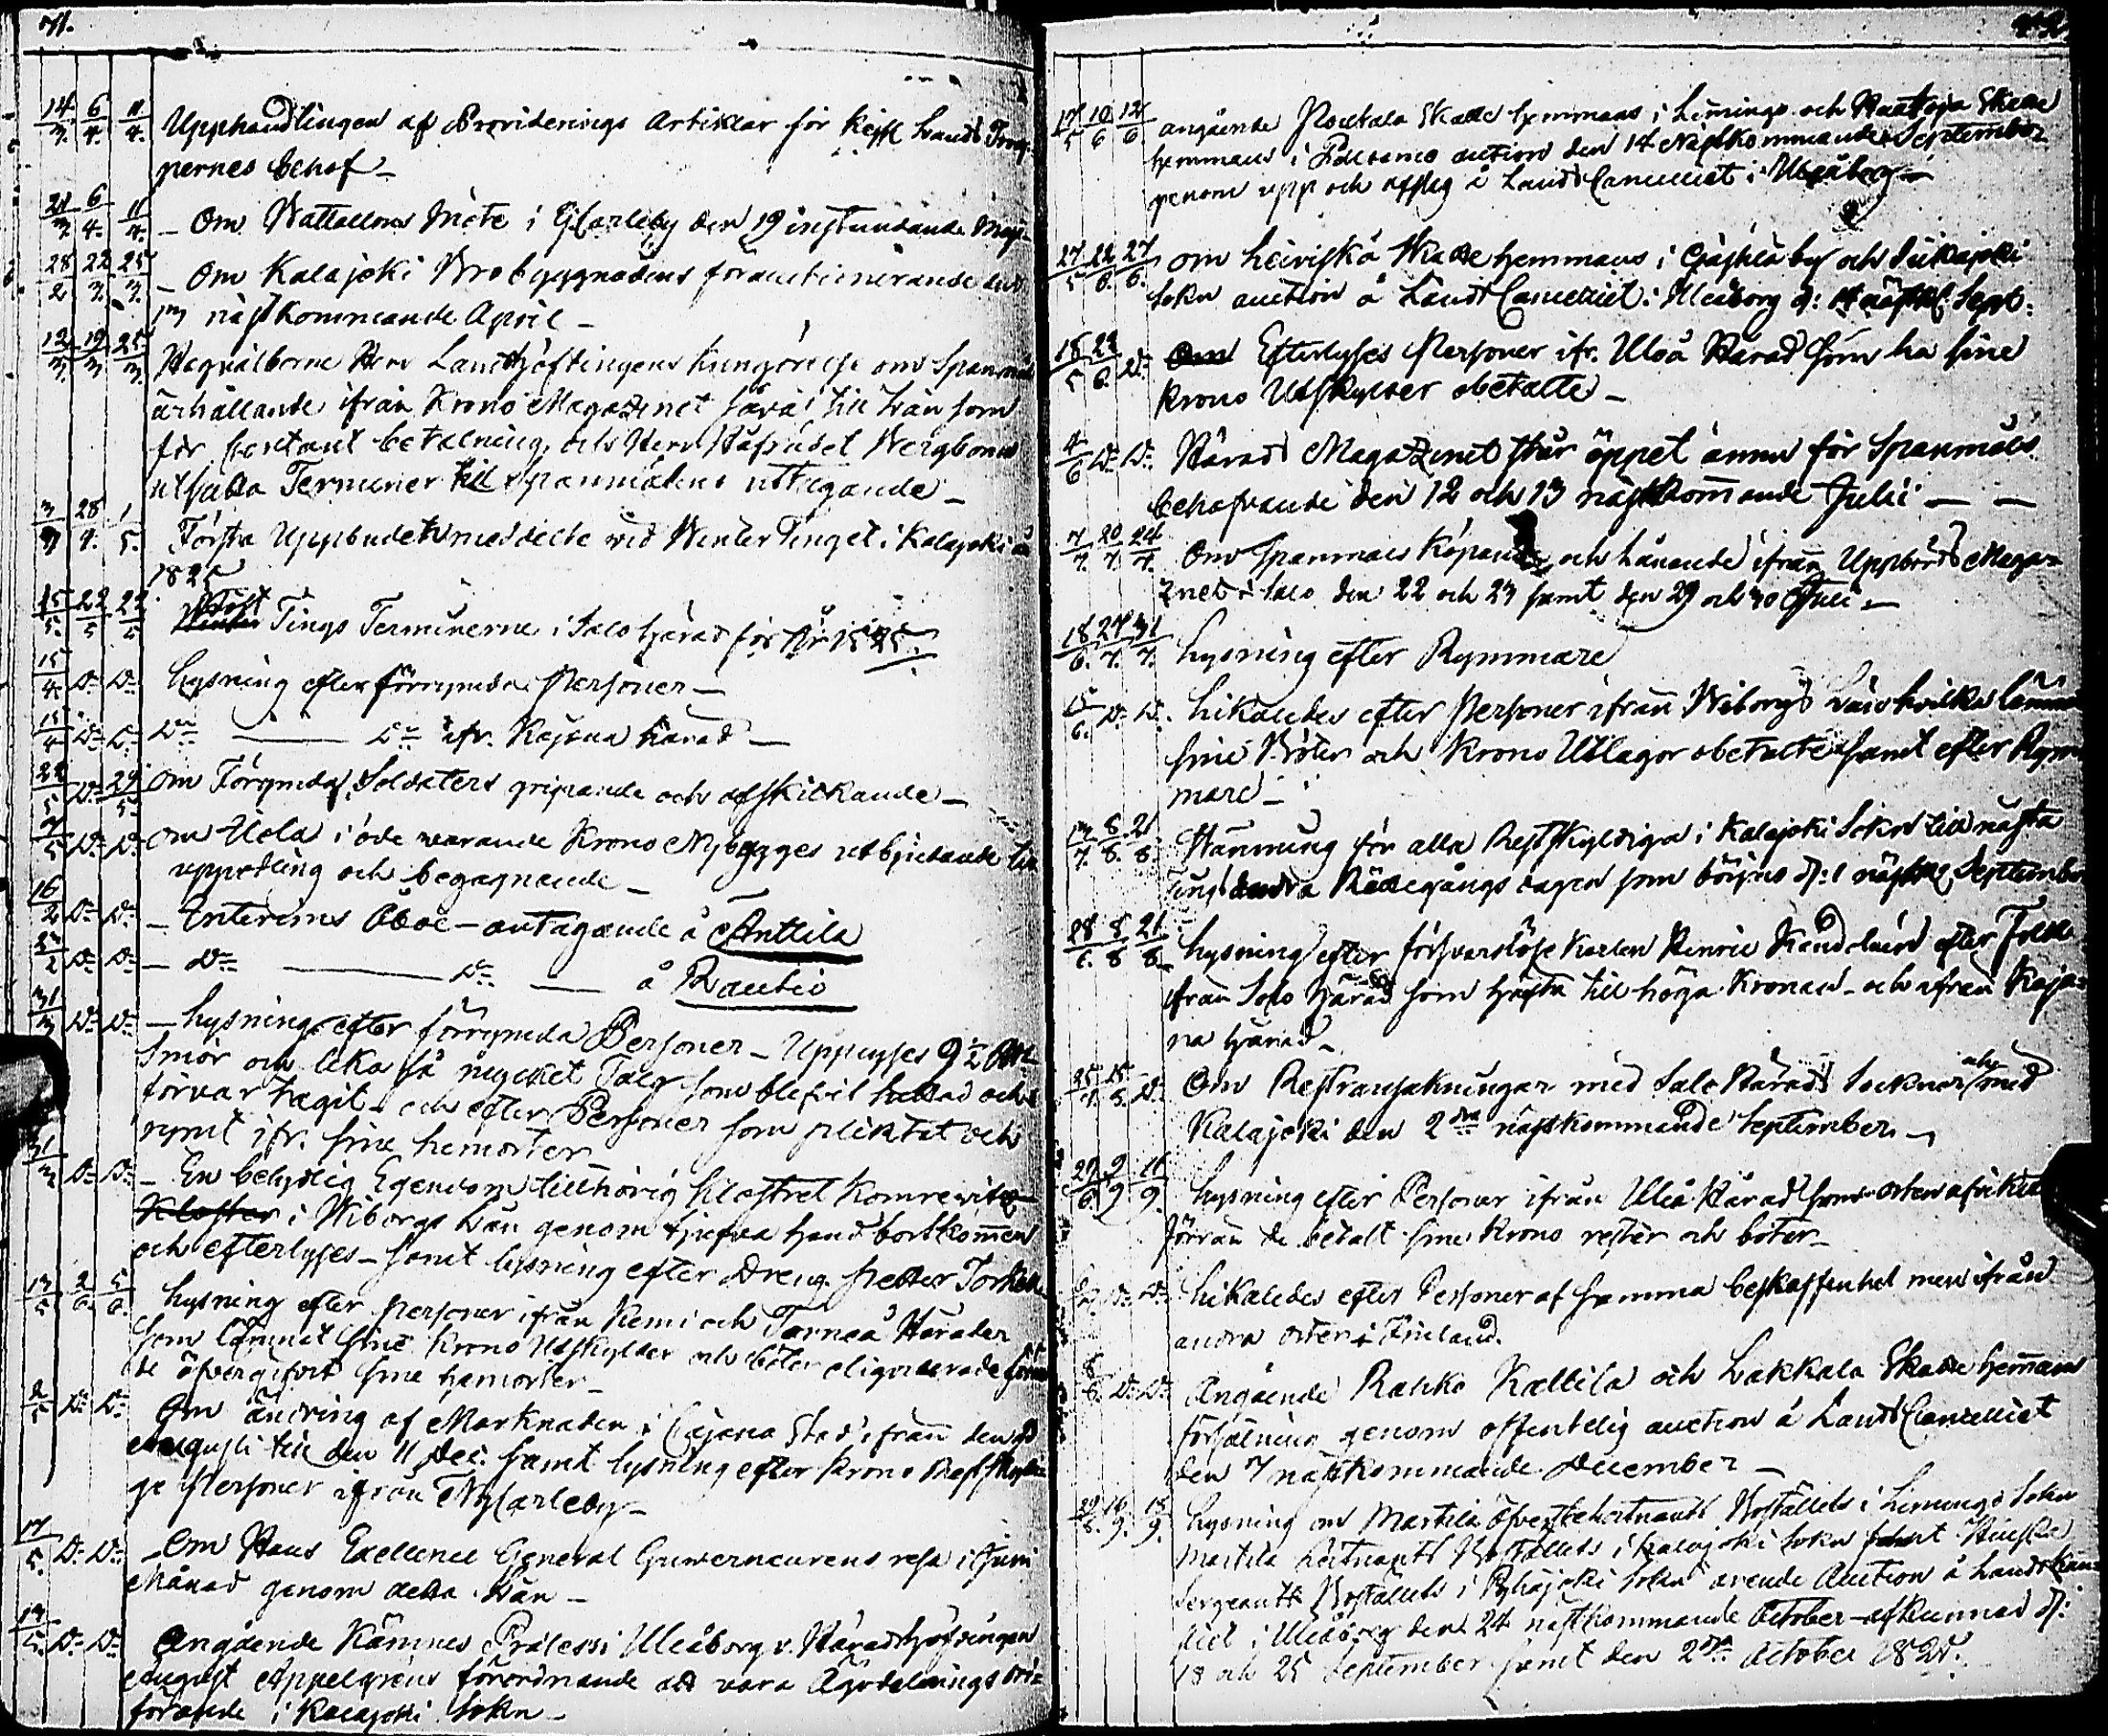 71.
14/3. 6/4. 11/4. Upphandlingen af Providerings Artiklar för Kejsl Lands Trop-
pernes behof -
21/3. 6/4. 11/4. - Om Wattallons Möte i GCarleby den 19 instundande Maji
28/2 22/3. 25/3. - Om Kalajoki Brobyggnadens förauctionerande den
näst kommande April -
12/3. 19/3 25/3. Högvälborne Herr Landshöfdingens Kungörelse om Spanmåls
erhållande ifrån Krono Magazinet såväl till Lån som
för contant betalning, och Herr Häfrådet Bergboms
utsatta Terminer till Spanmålens uttagande -
28/4. 1/5. Första Uppbudet meddelte vid Winter Tinget i Kalajoki år
1825
15/5. 22/5 22/5 Höst Tings Terminerne i Salo härad för År 1825.
15/4. Do Do Lysning efter förrymda Personer -
15/4 Do Do Do ——— Do ifr. Kajana härad -
22/5 Do 29/5 om Förrymda Soldaters gripande och afskickande -
5 Do Do om Uola i öde warande Krono Nybygges utbjudande till
uppodling och begagnande -
16/2 Do Do - Interims Åboe - antagande å Anttila
2 Do Do - Do ——— Do —— å Rautio
31/3 Do Do - Lysning efter förrymda Personer - Upplyses 9 1/2
Smör och lika så mycket Talg som blifvit hittad och
förvar tagit - och efter Personer som pliktat och
rymt ifr. sine hemorter
31/3 Do Do - En betydlig Egendom tillhörig Klostret Komrewitz
Kloster i Wiborgs Län genom tjufva hand bortkommen
och efterlyses - samt lysning efter Dreng Petter
13/5 2/6. 5/6. Lysning efter personer ifrån Kemi och Torneå Härader
som lämnat sine Krono Utskylder och böter oligviderade förän
de öfvergifvit sine hemorter -
2/5 Do Do Om ändring af Marknaden i Cajana Stad ifrån den
Augusti till den 11 Dec. samt lysning efter Krono Restskyldi-
ge Personer ifrån NyCarleby -
17/5. Do Do - Om Hans Excellence General Guverneurens resa i Juni
Månad genom detta Län -
Do Do Angående Kämners Præses i Uleåborg v. Häradshöfdingen
August Appelgréns förordnande att vara Ägodelnings ord-
förande i Kalajoki Sokn -
17/5 10/6 12/6 angående Poukala Skatte hemmans i Limingo och Skatte
hemmans i Paldamo auction den 14 Nästkommande September
genom upp och afslag å LandsCancelliet i Uleåborg -
27/5 22/6. 27/6. om Heiviskä Skattehemmans i by och Siikajoki
Sokn auction å LandsCancelliet i Uleåborg d: 14 nästk. Sept.
18/5 22/6. Do Om Efterlyses Personer ifr. Uleå Härad som ha sine
Krono Utskylder obetalte -
4/6 Do Do Härads Magazinet står öppet ännu för Spanmåls
behöfvande den 12 och 13 nästkommande Julii — —
7/7. 20/7. 24/7. Om Spanmåls Köpande och Lånande ifrån Uppbörds Maga-
zinet i Salo den 22 och 23 samt den 29 och 30 Juli -
18/6. 27/7. 31/7. Lysning efter Rymmare
15/6. Do Do. Likaledes efter Personer ifrån Wiborgs Län hvilka lämnat
sine Böter och Krono Utlagor obetalte samt efter Rym
mare -
13/7. 8/8. 21/8. Stämning för alla Restskyldiga i Kalajoki Sokn till nästa
Tings andra Rättegångs dagen som börjas d: 1 nästk. September
28/6. 8/8 21/8 Lysning efter försvarslöse Karlen Henric efter Folk
ifrån Salo härad som häfta till höga Kronan - och ifrån Kaja-
na härad -
25/7. 15/8. Do Om Restransakningar med Salo Härads Soknar äfven med
Kalajoki den 2dra nästkommande September -
29/8. 9/9 11/9. Lysning efter Personer ifrån Uleå Härad som orten afvikit
förrän de betalt sine Krono rester och böter -
Do Do Likaledes efter Personer af samma beskaffenhet men ifrån
andra orter i Finland.
8/8. Do Do Angående Rahko Kattila och Lakkala Skatte hemman
försäljning genom offentelig auction å LandsCancelliet
den 7 nästkommande December -
29/8. 14/9. 18/9 Lysning om Marttila Öfverstelieutnants Boställets i Limingo Sokn
Marttila Lieutnants Boställets i Kalajoki Sokn samt
Sergeants Boställets i Pyhäjoki Sokn arende Auction å Landskan-
sliet i Uleåborg den 24 nästkommande October - afkunnad d:
18 och 25 September samt den 2dra October 1825.